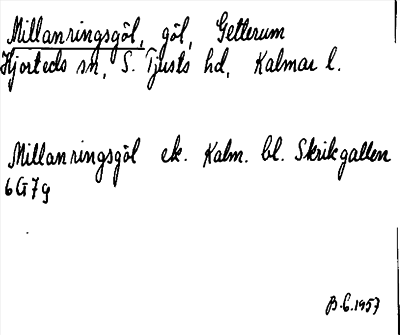 Millanringsgöl, göl, Getterum
Hjorteds sn, S. Tjusts hd, Kalmar l.
Millanringsgöl ek. Kalm. bl. Skrikgallen
6G7g
B.G.1957